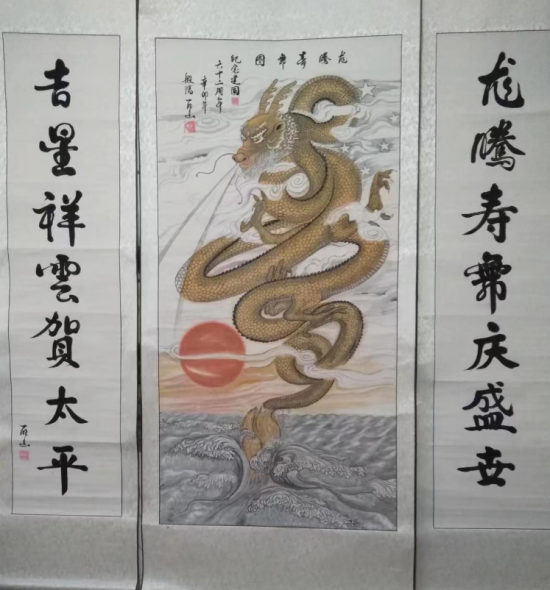 龙騰寿舞庆盛世
龙腾寿舞图
纪念建国
六十二周年
辛卯年
般阳
吉星祥雲賀太平